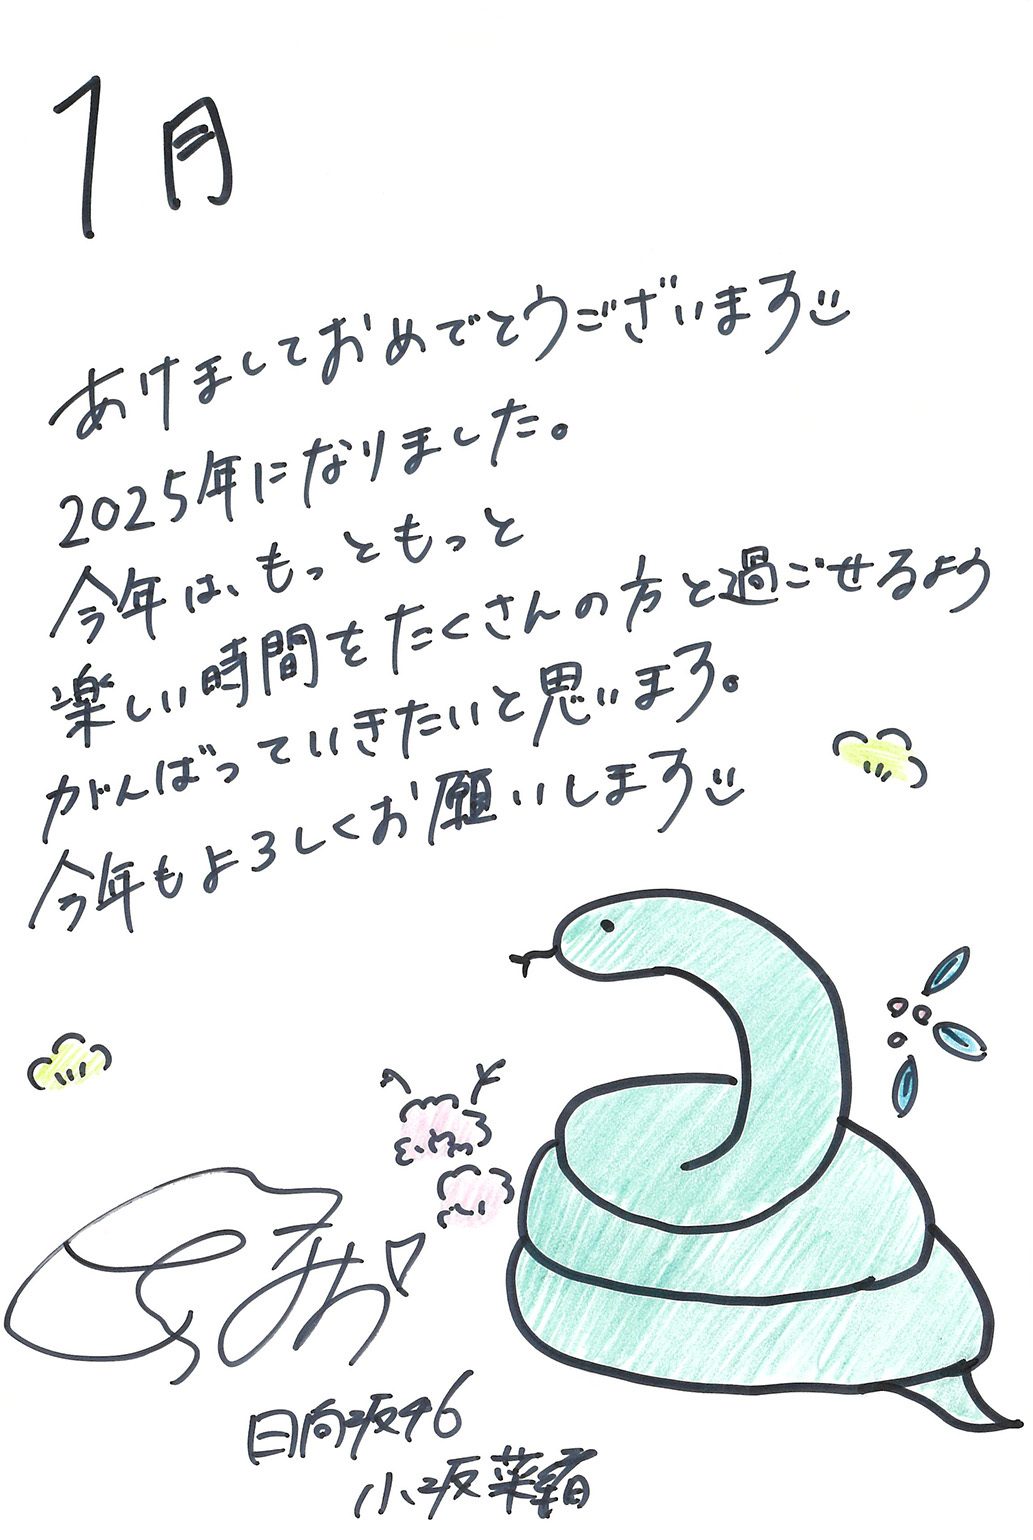 1月
あけましておめでとうございます
2025年になりました。
今年は、もっともっと
楽しい時間をたくさんの方と過ごせるよう
がんばっていきたいと思います。
今年もよろしくお願いします
日向坂46
小坂菜緒